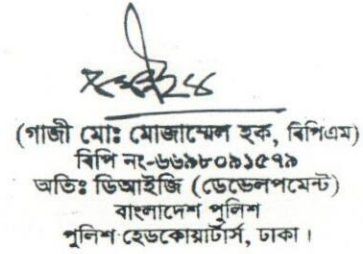 (গাজী মোঃ মোজাম্মেল হক, বিপিএম)
বিপি নং-৬৬৯৮০৯১৫৭৯
অতিঃ ডিআইজি (ডেভেলপমেন্ট)
বাংলাদেশ পুলিশ
পুলিশ হেডকোয়ার্টার্স, ঢাকা।